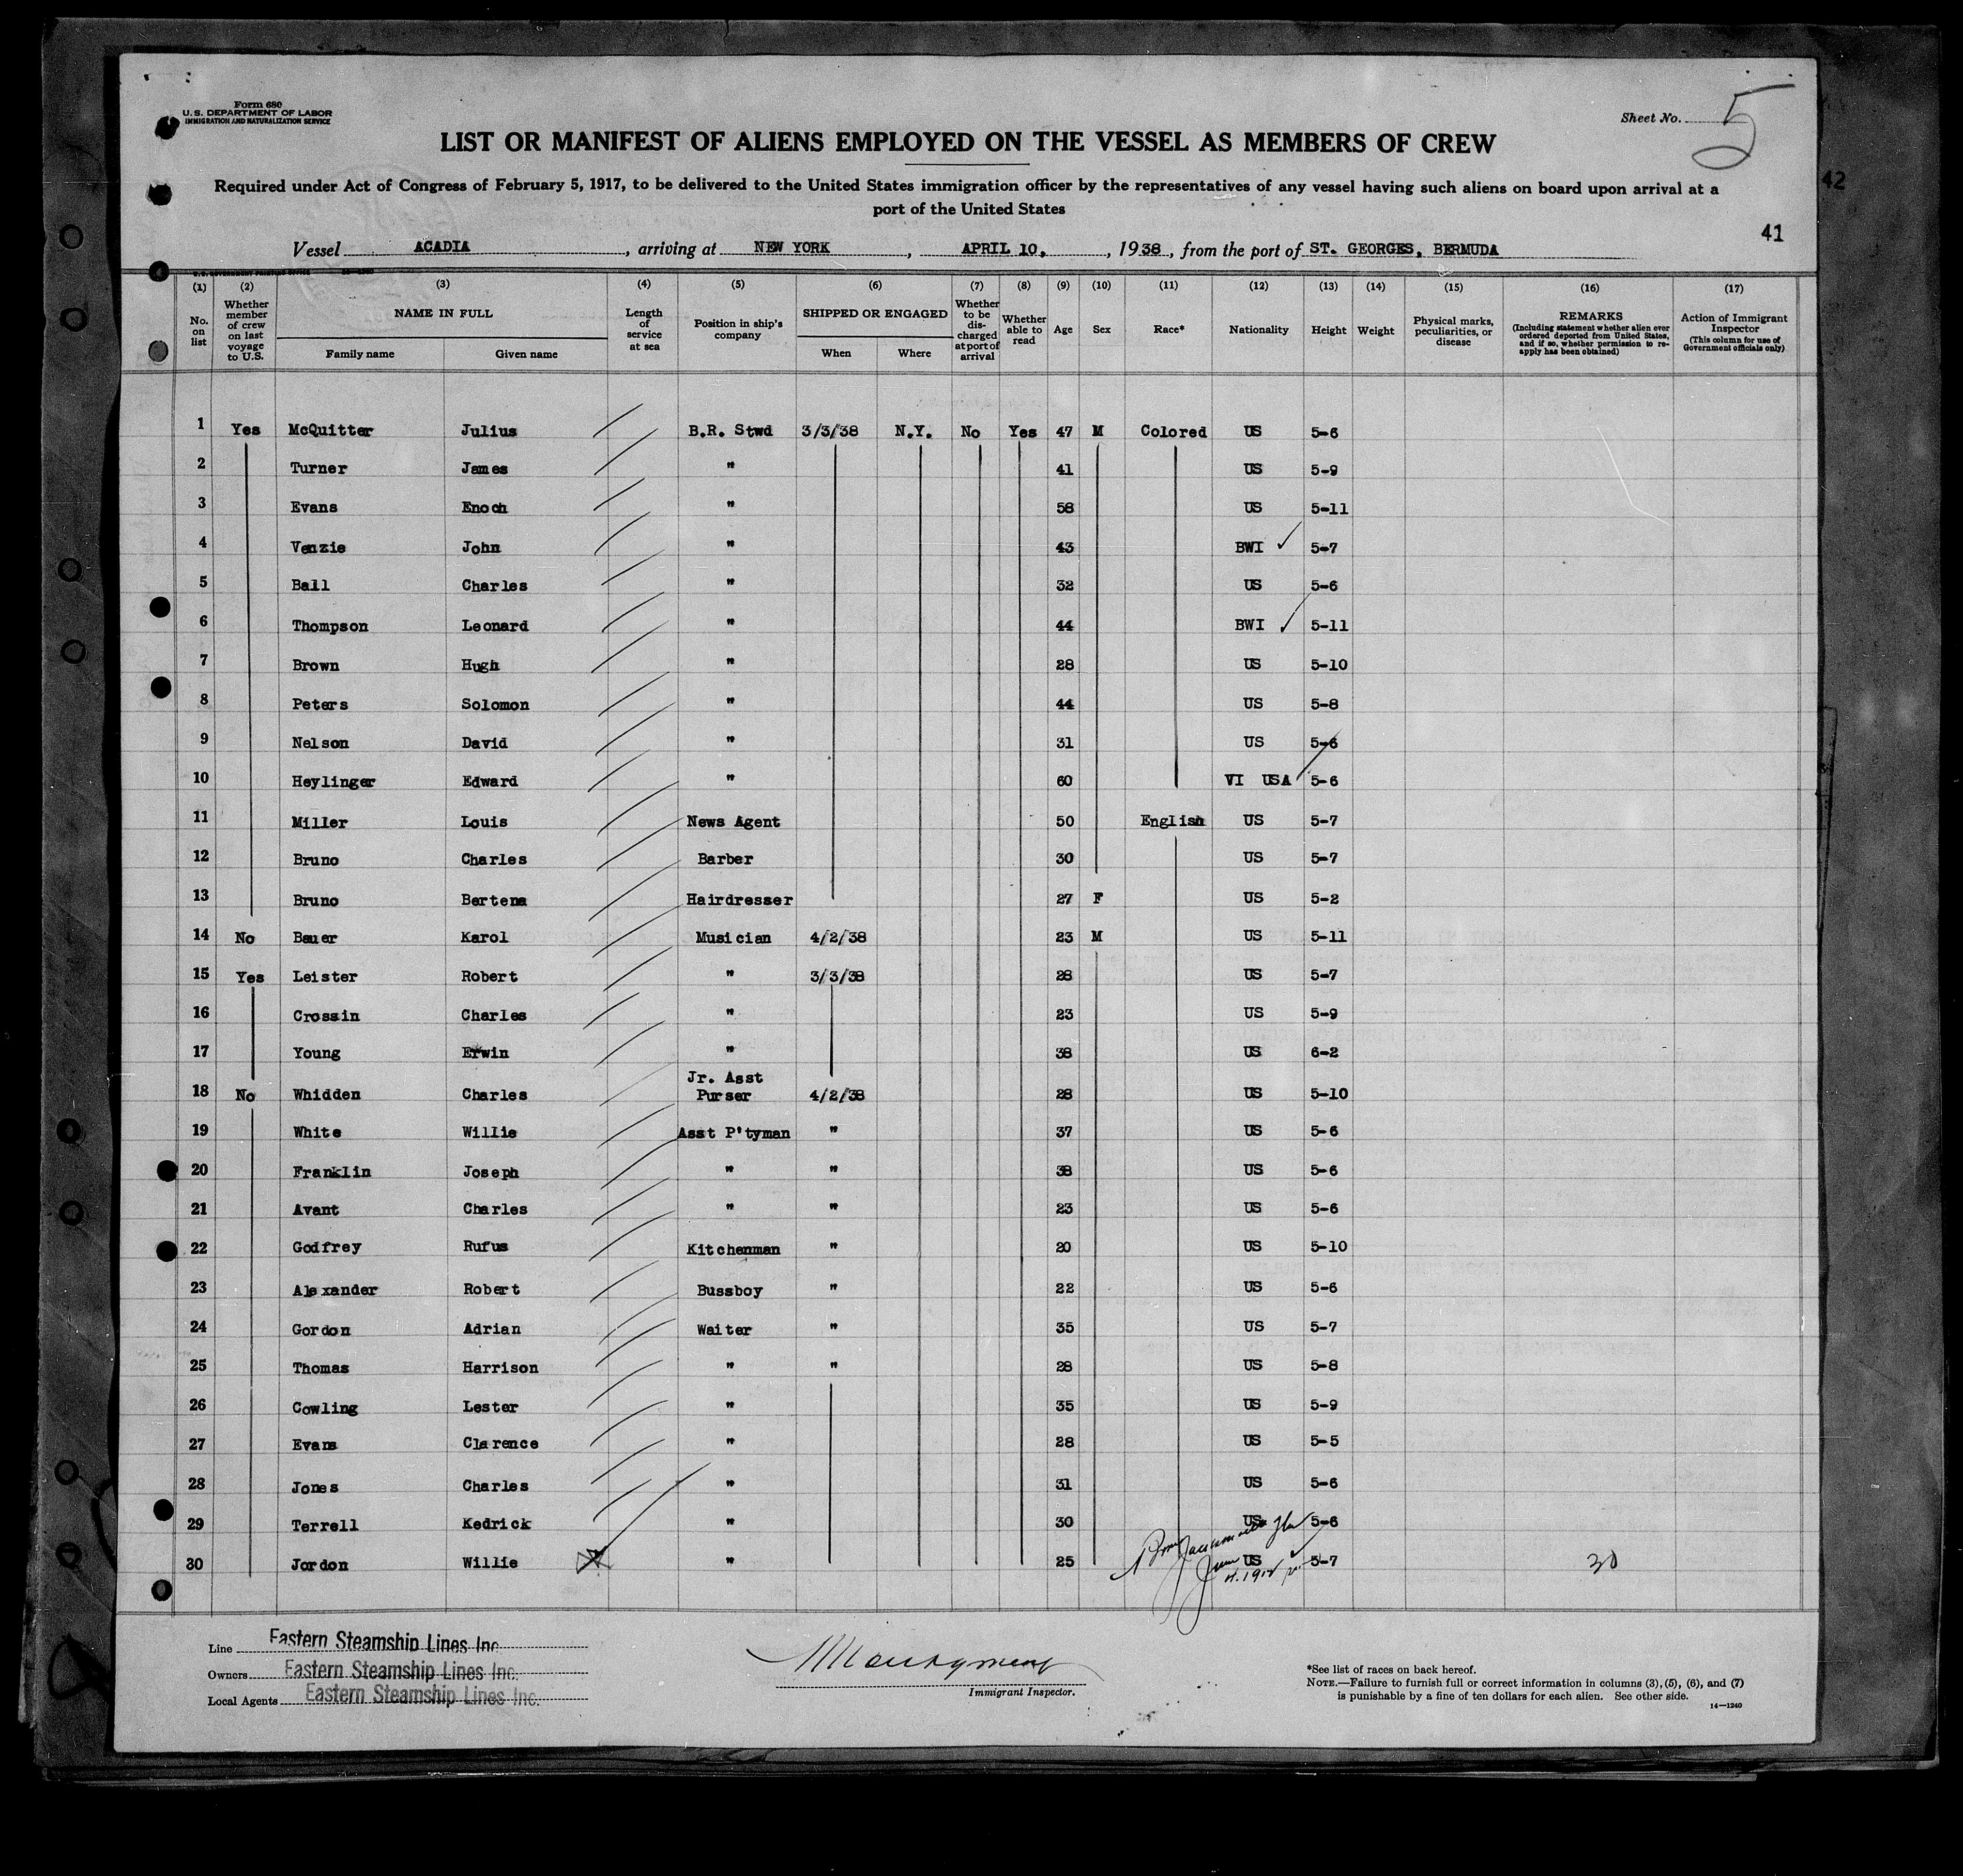 Form 680
U.S. DEPARTMENT OF LABOR
IMMIGRATION AND NATURALIZATION SERVICE
Sheet No. 5
LIST OR MANIFEST OF ALIENS EMPLOYED ON THE VESSEL AS MEMBERS OF CREW
Required under Act of Congress of February 5, 1917, to be delivered to the United States immigration officer by the representatives of any vessel having such aliens on board upon arrival at a
port of the United States
42
41
Vessel ACADIA, arriving at NEW YORK, APRIL 10, 1938, from the port of ST. GEORGES, BERMUDA
U.S. GOVERNMENT PRINTING OFFICE
(1) (2) (3) (4) (5) (6) (7) (8) (9) (10) (11) (12) (13) (14) (15) (16) (17)
No. on list
Whether member of crew on last voyage to U.S.
NAME IN FULL
Family name Given name
Length of service at sea
Position in ship's company
SHIPPED OR ENGAGED
When Where
Whether to be discharged at port of arrival
Whether able to read
Age Sex Race* Nationality Height Weight
Physical marks, peculiarities, or disease
REMARKS
(Including statement whether alien ever ordered deported from United States, and if so, whether permission to re-apply has been obtained)
Action of Immigrant Inspector
(This column for use of Government officials only)
1 Yes McQuitter Julius B.R. Stwd 3/3/38 N.Y. No Yes 47 M Colored US 5-6
2 Turner James " 41 US 5-9
3 Evans Enoch " 58 US 5-11
4 Venzie John " 43 BWI ✓ 5-7
5 Ball Charles " 32 US 5-6
6 Thompson Leonard " 44 BWI ✓ 5-11
7 Brown Hugh " 28 US 5-10
8 Peters Solomon " 44 US 5-8
9 Nelson David " 31 US 5-6
10 Heylinger Edward " 60 VI USA 5-6
11 Miller Louis News Agent 50 English US 5-7
12 Bruno Charles Barber 30 US 5-7
13 Bruno Bertena Hairdresser 27 F US 5-2
14 No Bauer Karol Musician 4/2/38 23 M US 5-11
15 Yes Leister Robert " 3/3/38 28 US 5-7
16 Crossin Charles " 23 US 5-9
17 Young Erwin " 38 US 6-2
18 No Whidden Charles Jr. Asst Purser 4/2/38 28 US 5-10
19 White Willie Asst P'tyman " 37 US 5-6
20 Franklin Joseph " " 38 US 5-6
21 Avant Charles " " 23 US 5-6
22 Godfrey Rufus Kitchenman " 20 US 5-10
23 Alexander Robert Bussboy " 22 US 5-6
24 Gordon Adrian Waiter " 35 US 5-7
25 Thomas Harrison " " 28 US 5-8
26 Cowling Lester " 35 US 5-9
27 Evans Clarence " 28 US 5-5
28 Jones Charles " 31 US 5-6
29 Terrell Kedrick " 30 US 5-6
30 Jordon Willie " 25 US 5-7 30
Line Eastern Steamship Lines Inc.
Owners Eastern Steamship Lines Inc.
Local Agents Eastern Steamship Lines Inc.
Immigrant Inspector.
*See list of races on back hereof.
NOTE.—Failure to furnish full or correct information in columns (3), (5), (6), and (7)
is punishable by a fine of ten dollars for each alien. See other side.
14—1240